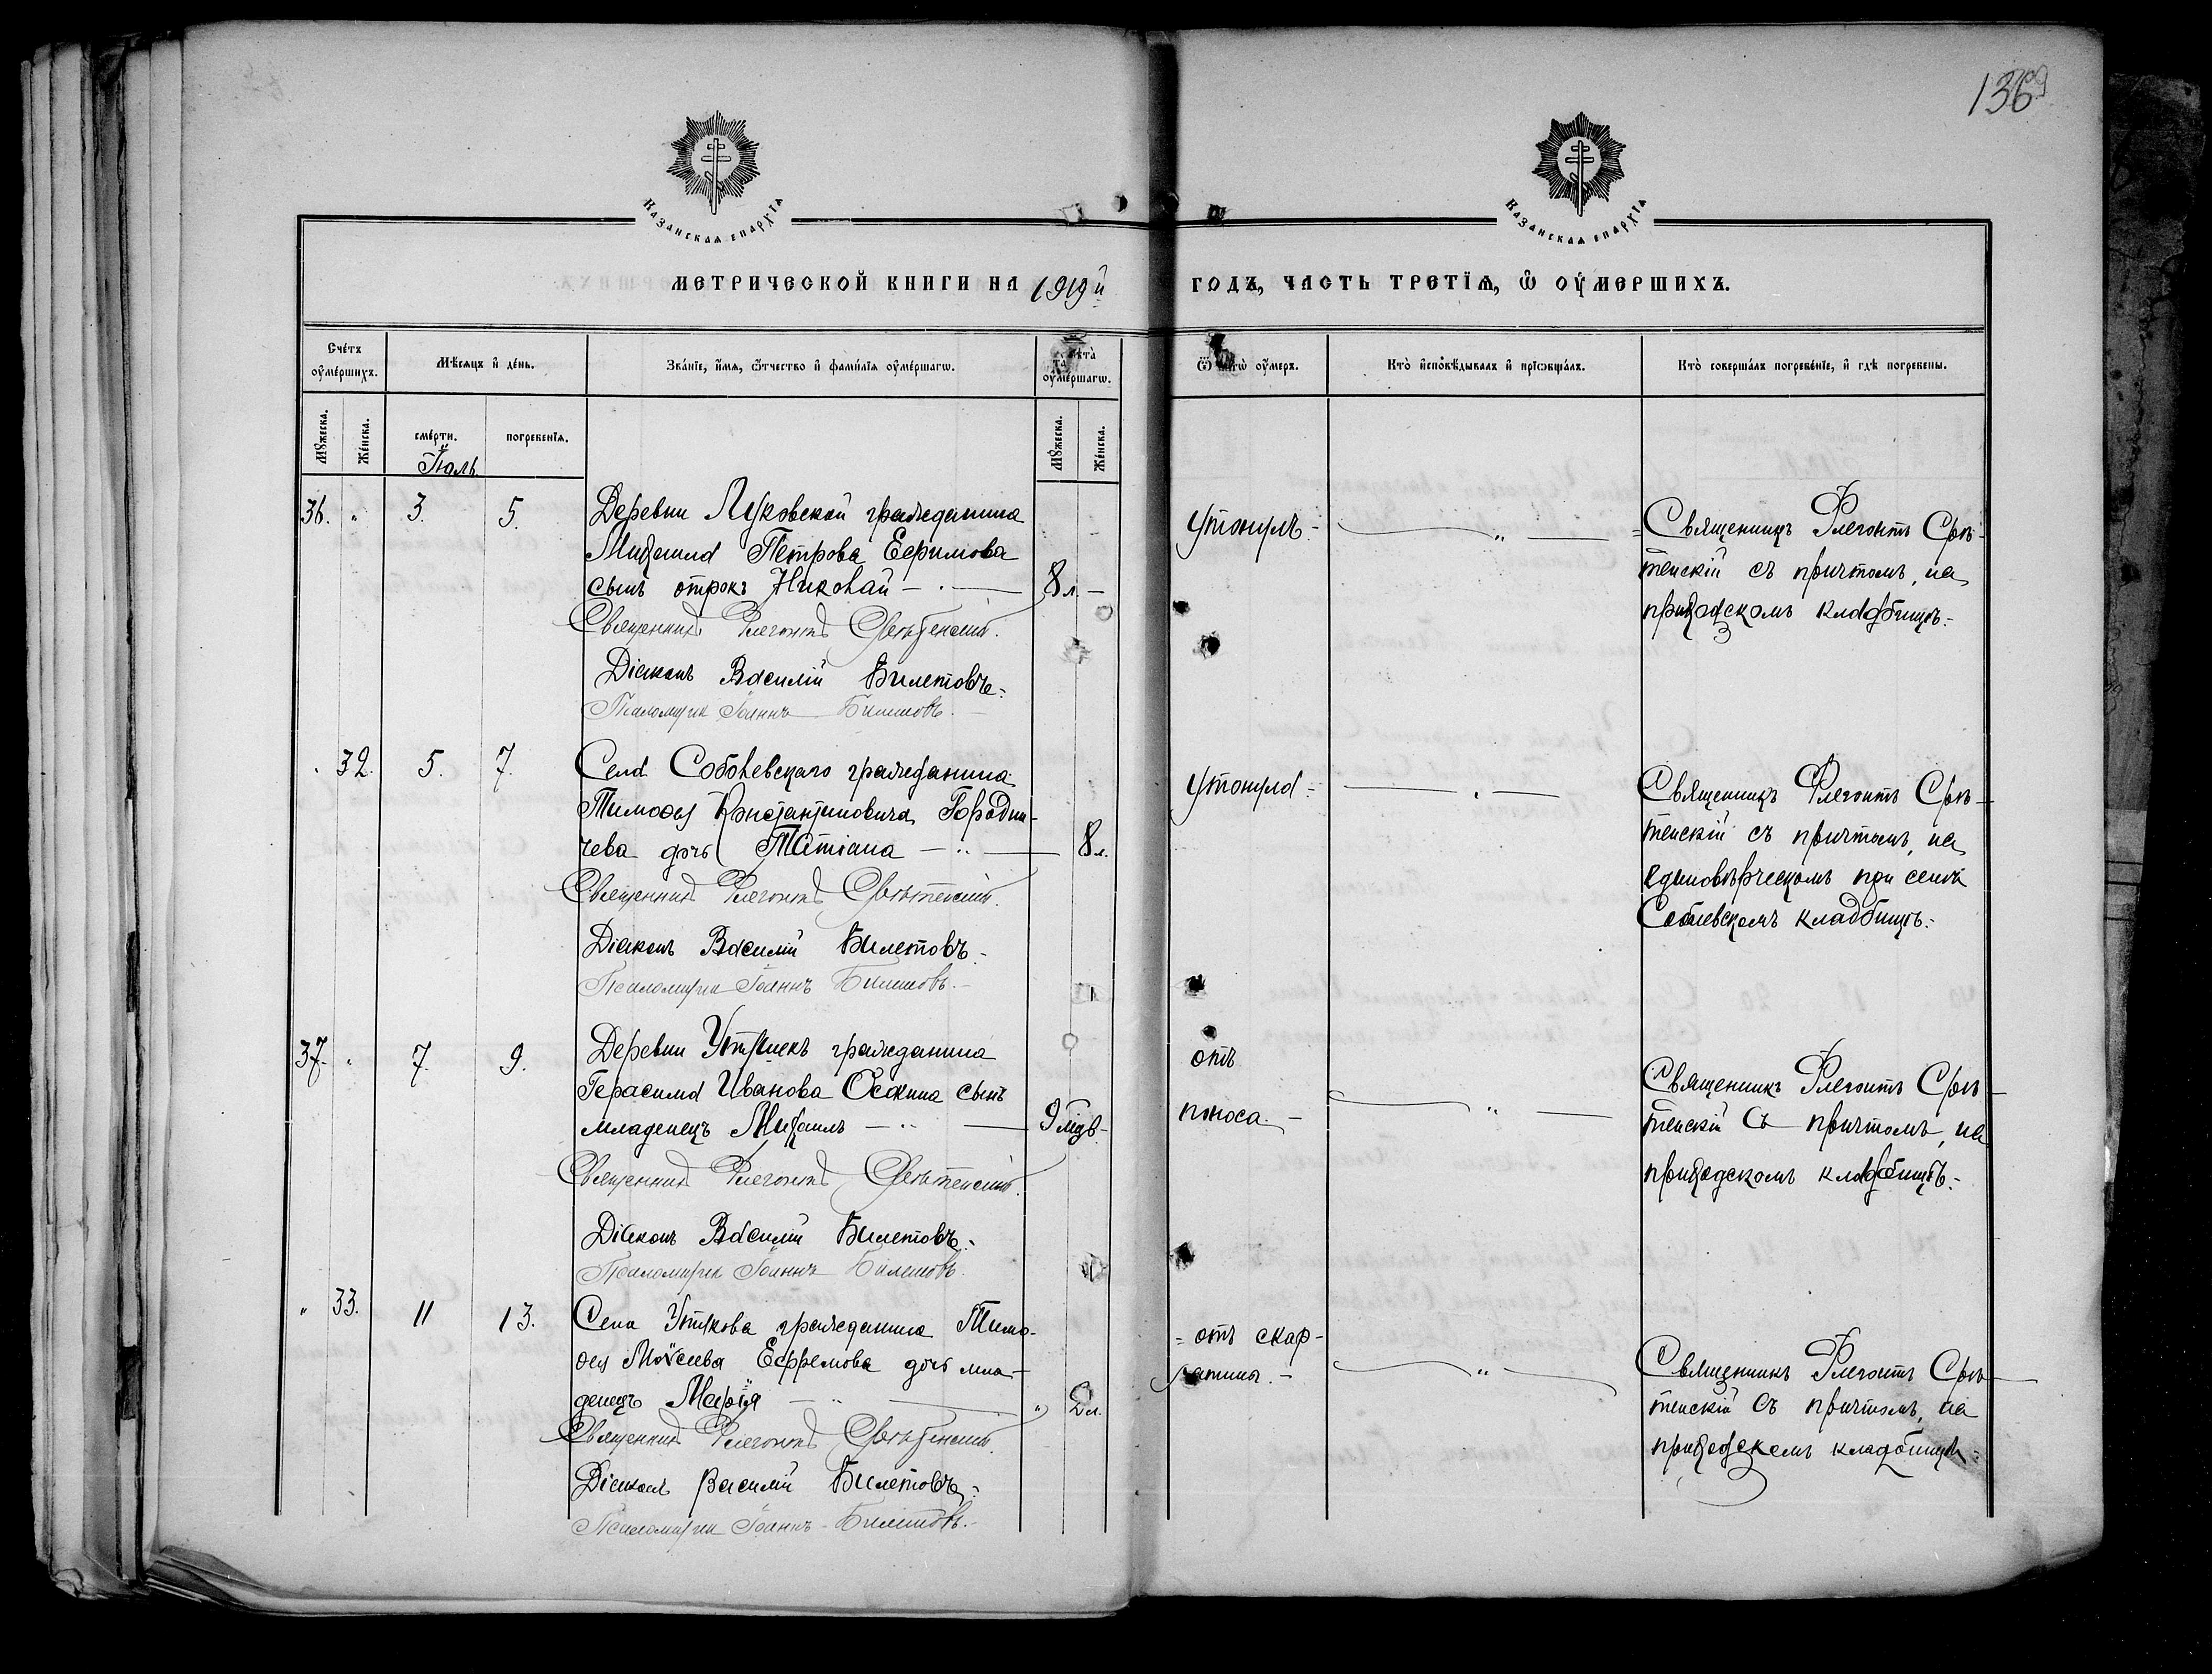 136
Казанскаѧ епархїѧ
Казанскаѧ епархїѧ
МЕТРИЧЕСКОЙ КНИГИ НА 1919й ГОДЪ, ЧАСТЬ ТРЕТІѦ, Ѡ ОУМЕРШИХЪ.
Счéтъ оумéршихъ.
Мѣсяцъ и дéнь.
Звáнїе, имѧ, ѻтчество и фамилїѧ оумéршагѡ.
Лѣта оумéршагѡ.
Ѿ чегѡ оумеръ.
Ктò исповѣдывалъ и прїѡбщáлъ.
Ктò совершáлъ погребéнїе, и гдѣ погребены.
Мꙋжеска.
Жéнска.
смéрти.
погребенїѧ.
Мꙋжеска.
Жéнска.
Іюль
36. " 3. 5.
Деревни Луковской гражданина
Михаила Петрова Ефимова
сынъ отрокъ Николай — 8 л. —
Священникъ Флегонтъ Срѣтенскій.
Діаконъ Василій Билетовъ.
Псаломщик Іоаннъ Билетовъ.
утонулъ. — " —
Священникъ Флегонтъ Срѣ-
тенскій съ причтомъ, на
приходскомъ кладбищѣ.
32. 5. 7.
Села Соболевскаго гражданина
Тимоѳея Константиновича Городни-
чева дочь Татіана — 8 л.
Священникъ Флегонтъ Срѣтенскій.
Діаконъ Василій Билетовъ.
Псаломщик Іоаннъ Билетовъ.
утонула —
Священникъ Флегонтъ Срѣ-
тенскій съ причтомъ, на
единовѣрческомъ при селѣ
Соболевскомъ кладбищѣ.
37. " 7. 9.
Деревни гражданина
Герасима Иванова Осокина сынъ
младенецъ Михаилъ — 9
Священникъ Флегонтъ Срѣтенскій.
Діаконъ Василій Билетовъ.
Псаломщик Іоаннъ Билетовъ.
отъ
поноса. — " —
Священникъ Флегонтъ Срѣ-
тенскій съ причтомъ, на
приходскомъ кладбищѣ.
" 33. 11 13.
Села Утякова гражданина Тимо-
ѳея Моѵсеева Ефремова дочь мла-
денецъ Марія — " 2 л.
Священникъ Флегонтъ Срѣтенскій.
Діаконъ Василій Билетовъ.
Псаломщик Іоаннъ Билетовъ.
отъ скар-
латины. — " —
Священникъ Флегонтъ Срѣ-
тенскій съ причтомъ, на
приходскомъ кладбищѣ.